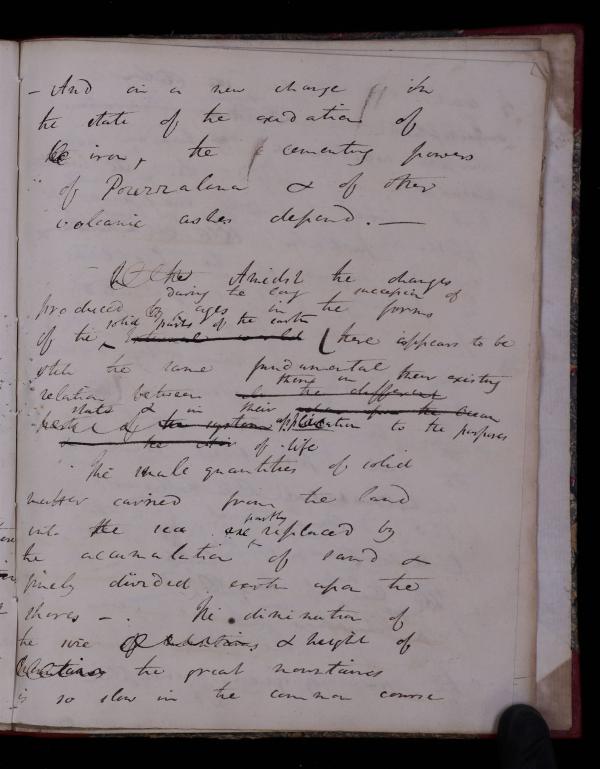 - And on a new change in
the state of the oxidation of
the iron, the cementing powers
of Pouzzalana & of other
volcanic ashes depend. —
Amidst the changes
during the long succession of
produced by ages in the forms
solid parts of the earth
of the natural world there appears to be
still the same fundamental
things in their existing
relation between in the different
state & in their
the system application to the purposes
of life
The small quantities of solid
matter carried from the land
into the sea are partly replaced by
the accumulation of sand &
finely divided earth upon the
shores -. The diminution of
the size & height of
the great mountains
is so slow in the common course